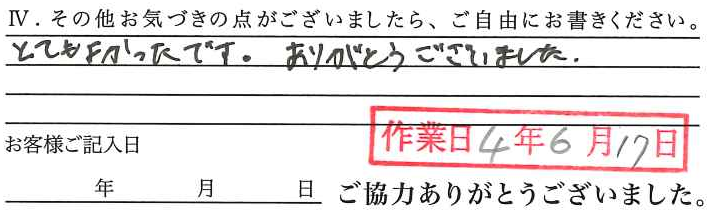 Ⅳ．その他お気づきの点がございましたら、ご自由にお書きください。
とてもよかったです。ありがとうございました．
作業日4年6月17日
お客様ご記入日
年 月 日 ご協力ありがとうございました。